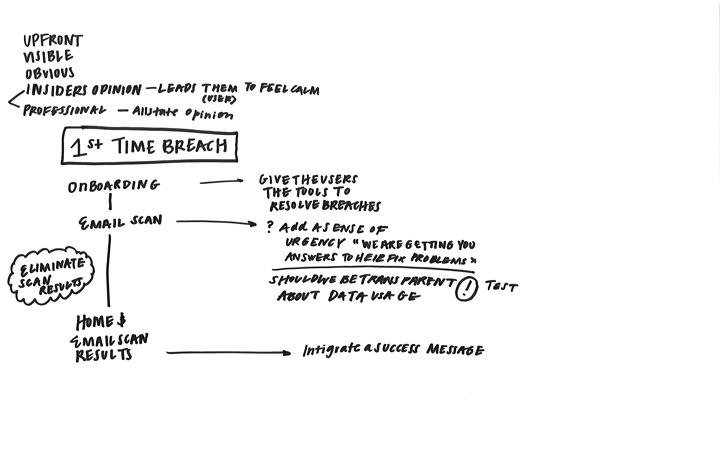 UPFRONT
VISIBLE
OBVIOUS
INSIDERS OPINION — LEADS THEM TO FEEL CALM
(USER)
PROFESSIONAL — Allstate opinion
1st TIME BREACH
ONBOARDING
GIVE THE USERS
THE TOOLS TO
RESOLVE BREACHES
EMAIL SCAN
? ADD A SENSE OF
URGENCY "WE ARE GETTING YOU
ANSWERS TO HELP FIX PROBLEMS"
ELIMINATE
SCAN
RESULTS
SHOULD WE BE TRANSPARENT
ABOUT DATA USAGE
! TEST
HOME &
EMAIL SCAN
RESULTS
Intigrate a SUCCESS MESSAGE